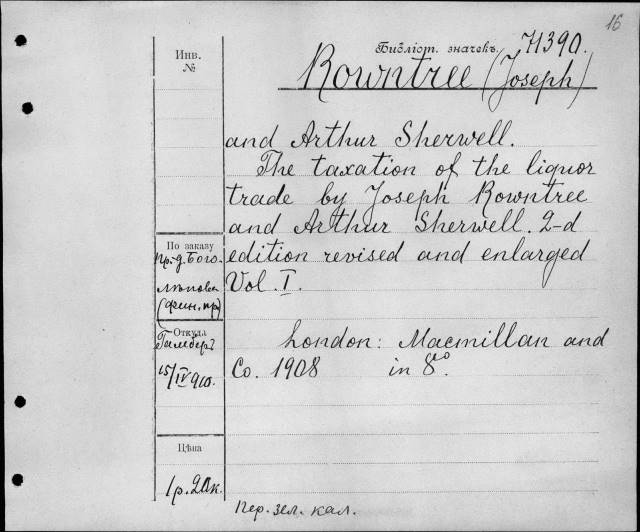 16
Библіот. значекъ. 71390.
Инв.
№
Rowntree (Joseph)
and Arthur Sherwell.
The taxation of the liquor
trade by Joseph Rowntree
and Arthur Sherwell. 2-d
edition revised and enlarged
Vol. I.
По заказу
пр-д. Бого-
лѣпова
(фин. пр)
Откуда
Гамберъ
15/IV 910.
London: Macmillan and
Co. 1908 in 8º.
Цѣна
1 р. 20 к.
пер. зел. кал.